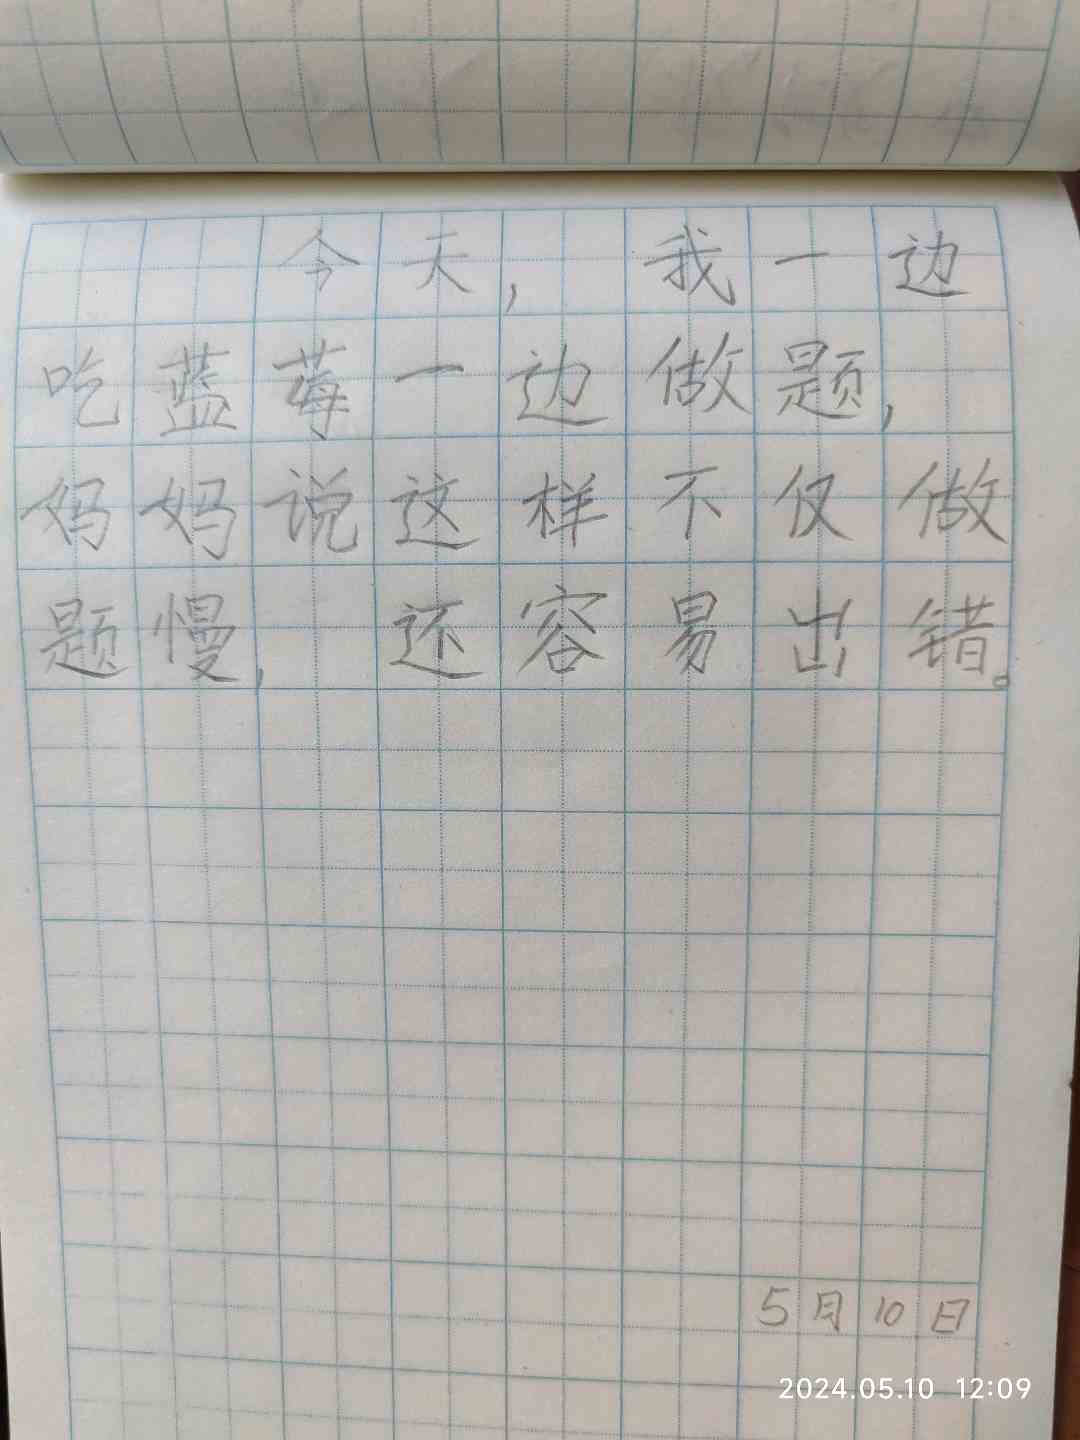 今天，我一边
吃蓝莓一边做题，
妈妈说这样不仅做
题慢，还容易出错。
5月10日
2024.05.10 12:09